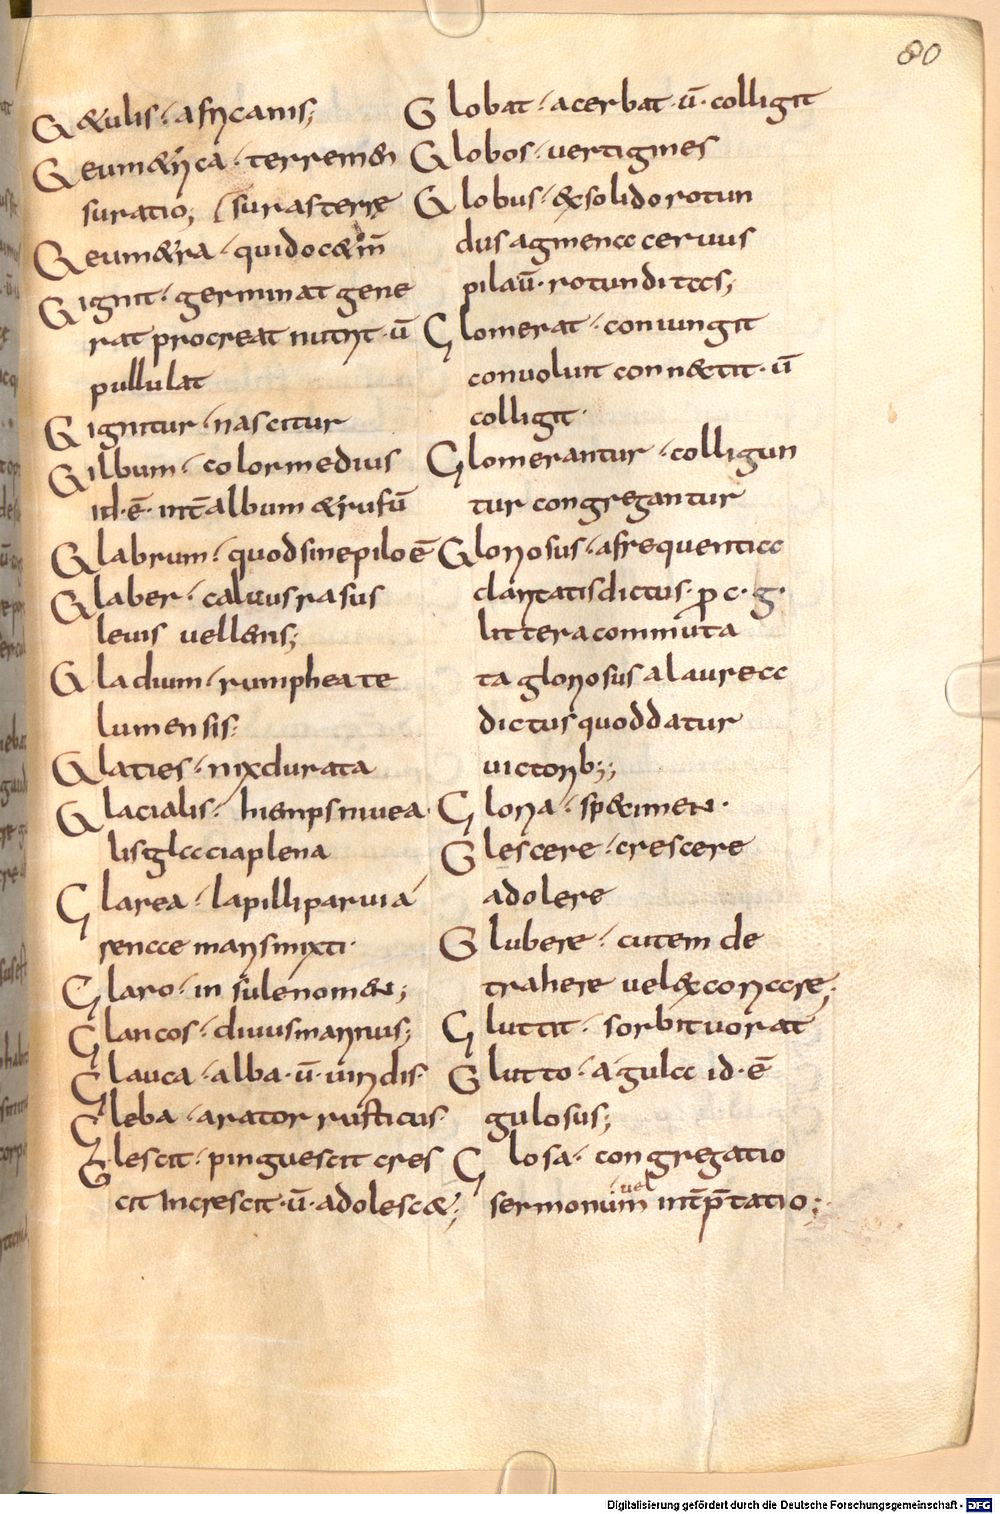 80
G&ulis · africanis;
Geum&rica · terremen
suratio; suras terre
Geum&ra · qui doc& in
Gignit · germinat gene
rat procreat nutrit · ū
pullulat
Gignitur · nascitur
Gilbum · color medius
id · ē · int̄ album & rufū
Glabrum · quod sine pilo ē
Glaber · caluus rasus
leuis uellens;
Gladium · rumphea te
lumensis:
Glaties · nix durata
Glacialis · hiemps niuea
lis t glacia plena
Glarea · lapilli parui a
renace maris mixti ·
Glaro · insule nomen;
Glancos · diuus marinus;
Glauca · alba · ū · uiridis ·
Gleba · arator rusticus
Glescit · pinguescit cres
cit Increscit · ū · adolesc&;
Globat · acerbat · ū · colligit
Globos · uertigines
Globus · exsolido rotun
dus agmen ac ceruus
pila ū · rotunditas;
Glomerat · coniungit
conuoluit connectit · ū
colligit ·
Glomerantur · colligun
tur congregantur
Gloriosus · a frequentia
claritatis dictus · ꝓ c · g ·
littera commuta
ta gloriosus a laurea
dictus quod datur
uictorib;;
Gloria · specimen ·
Glescere · crescere
adolere
Glubere · cutem de
trahere uel excoriare;
Gluttit · sorbit uorat
Glutto · a gula id · ē
gulosus;
Glosa · congregatio
uel
sermonum int̄p̄tatio;
Digitalisierung gefördert durch die Deutsche Forschungsgemeinschaft - DFG